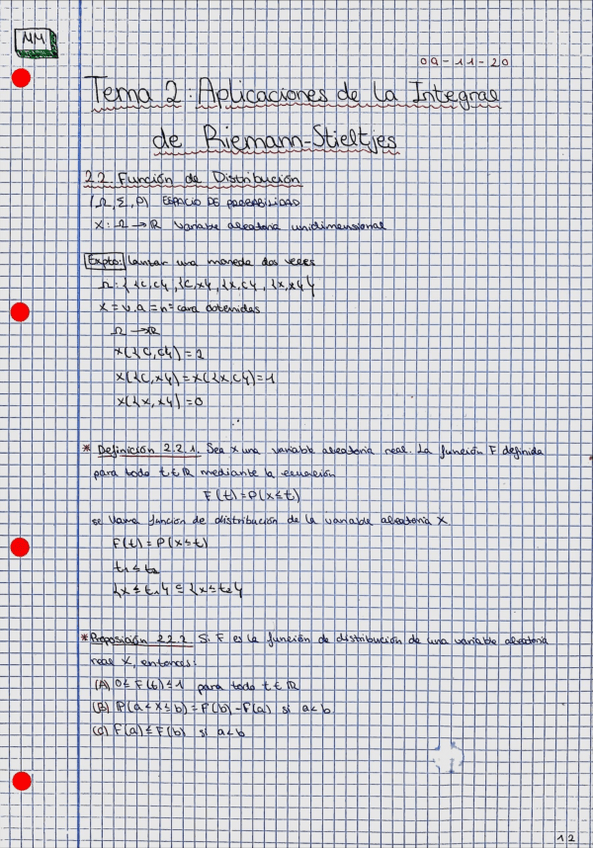 MM
09-11-20
Tema 2: Aplicaciones de la Integral
de Riemann-Stieltjes
2.2. Función de Distribución
(Ω, Σ, P) ESPACIO DE PROBABILIDAD
X: Ω → ℝ Variable aleatoria unidimensional
Expto: Lanzar una moneda dos veces
Ω: {{C,C}, {C,X}, {X,C}, {X,X}}
X = v.a = nº cara obtenidas
Ω → ℝ
X({C,C}) = 2
X({C,X}) = X({X,C}) = 1
X({X,X}) = 0
* Definición 2.2.1. Sea X una variable aleatoria real. La función F definida
para todo t ∈ ℝ mediante la ecuación
F(t) = P(X ≤ t)
se llama función de distribución de la variable aleatoria X.
F(t) = P(X ≤ t)
t₁ ≤ t₂
{X ≤ t₁} ⊆ {X ≤ t₂}
* Proposición 2.2.2. Si F es la función de distribución de una variable aleatoria
real X, entonces:
(A) 0 ≤ F(t) ≤ 1 para todo t ∈ ℝ
(B) P(a < X ≤ b) = F(b) - F(a) si a < b.
(C) F(a) ≤ F(b) si a < b
12